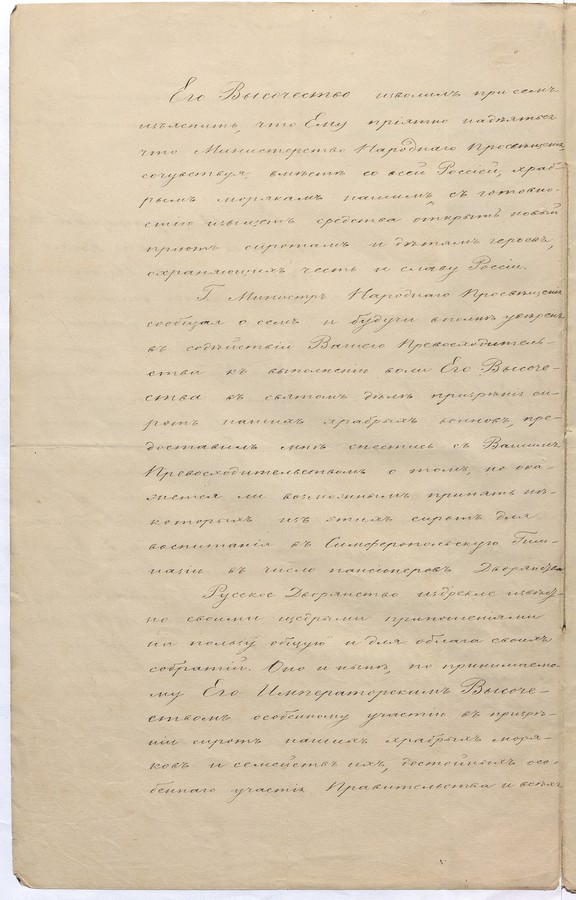 Его Высочество изволилъ при семъ
изъяснить, что Ему прiятно надѣяться
что Министерство Народнаго Просвѣщенiя
сочувствуя, вмѣстѣ со всей Россiей, храб-
рымъ морякамъ нашимъ, съ готовно-
стiю изыщетъ средства открыть новый
прiютъ сиротамъ и дѣтямъ героевъ,
охраняющихъ честь и славу Россiи.
Г. Министръ Народнаго Просвѣщенiя
сообщая о семъ и будучи вполнѣ увѣренъ
въ содѣйствiи Вашего Превосходитель-
ства къ выполненiю воли Его Высоче-
ства въ святомъ дѣлѣ призрѣнiя си-
ротъ нашихъ храбрыхъ воиновъ, пре-
доставилъ мнѣ снестись съ Вашимъ
Превосходительствомъ о томъ, не ока-
жется ли возможнымъ принять нѣ-
которыхъ изъ этихъ сиротъ для
воспитанiя въ Симферопольскую Гим-
назiю въ число пансiонеровъ Дворянства
Русское Дворянство издревле извѣст-
но своими щедрыми приношенiями
на пользу общую и для блага своихъ
собратiй. Оно и нынѣ, по принимаемо-
му Его Императорскимъ Высоче-
ствомъ особенному участiю въ призрѣ-
нiи сиротъ нашихъ храбрыхъ моря-
ковъ и семействъ ихъ, достойныхъ осо-
беннаго участiя Правительства и всѣхъ